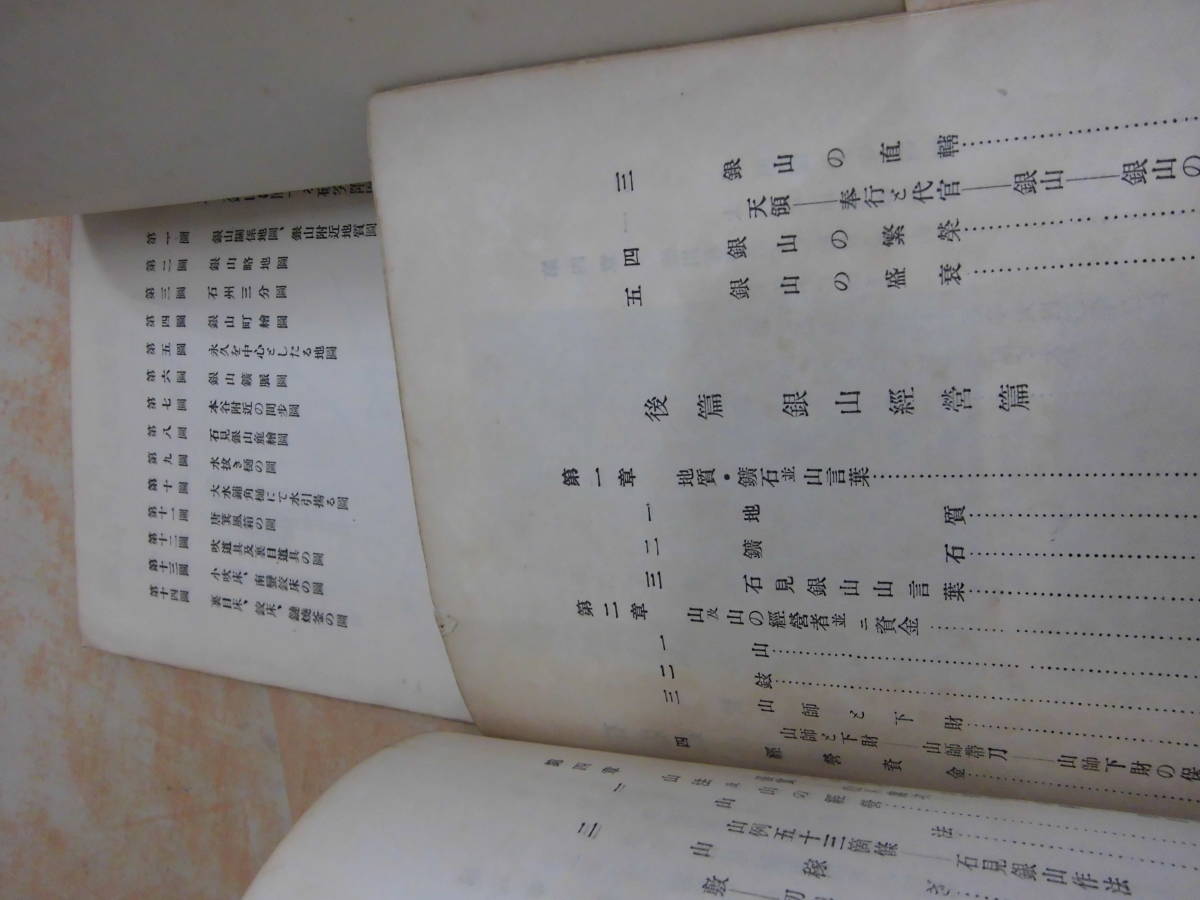 第一圖 銀山關係地圖、銀山附近地質圖
第二圖 銀山略地圖
第三圖 石州三分圖
第四圖 銀山町繪圖
第五圖 永久を中心としたる地圖
第六圖 銀山鑛脈圖
第七圖 本谷附近の間步圖
第八圖 石見銀山麁繪圖
第九圖 水拔き樋の圖
第十圖 大水鋪角樋にて水引揚る圖
第十一圖 唐箕風箱の圖
第十二圖 吹道具及裏目道具の圖
第十三圖 小吹床、南蠻絞床の圖
第十四圖 裏目床、絞床、鏈燒釜の圖
三 銀山の直轄
天領――奉行と代官――銀山――銀山の
四 銀山の繁榮
五 銀山の盛衰
後篇 銀山經營篇
第一章 地質・鑛石並山言葉
一 地質
二 鑛石
三 石見銀山山言葉
第二章 山及山の經營者並ニ資金
一 山
二 鉉
三 山師と下財
山師と下財――山師帶刀――山師下財の保
四 經營資金
一 山の經營
山例五十三箇條――石見銀山作法
二 山稼ぎ